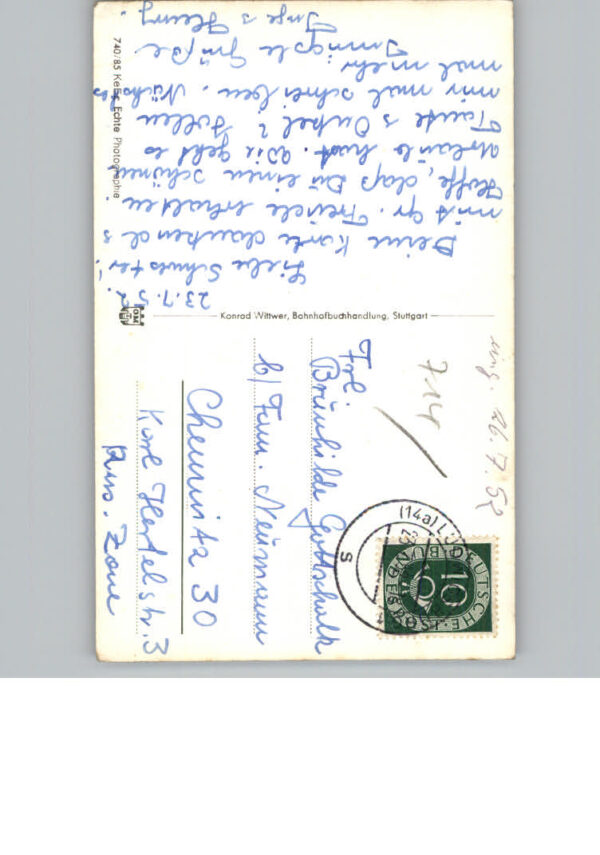 23.7.52.
Liebe Schwester!
Deine Karte dankend &
mit gr. Freude erhalten
Hoffe, daß Du einen schönen
Urlaub hast. Wie geht es
Tante & Onkel? Sollen
mir mal schreiben. Nächstes
mal mehr.
Innigste Grüße
Inge &
740/85 Echte Photographie
Konrad Wittwer, Bahnhofbuchhandlung, Stuttgart
Frl.
Brunhilde Gottschalk
b/ Fam. Neumann
Chemnitz 30
Karl Hertelstr. 3
Russ. Zone
714
26.7.52
(14a)
DEUTSCHE
BUNDESPOST
10